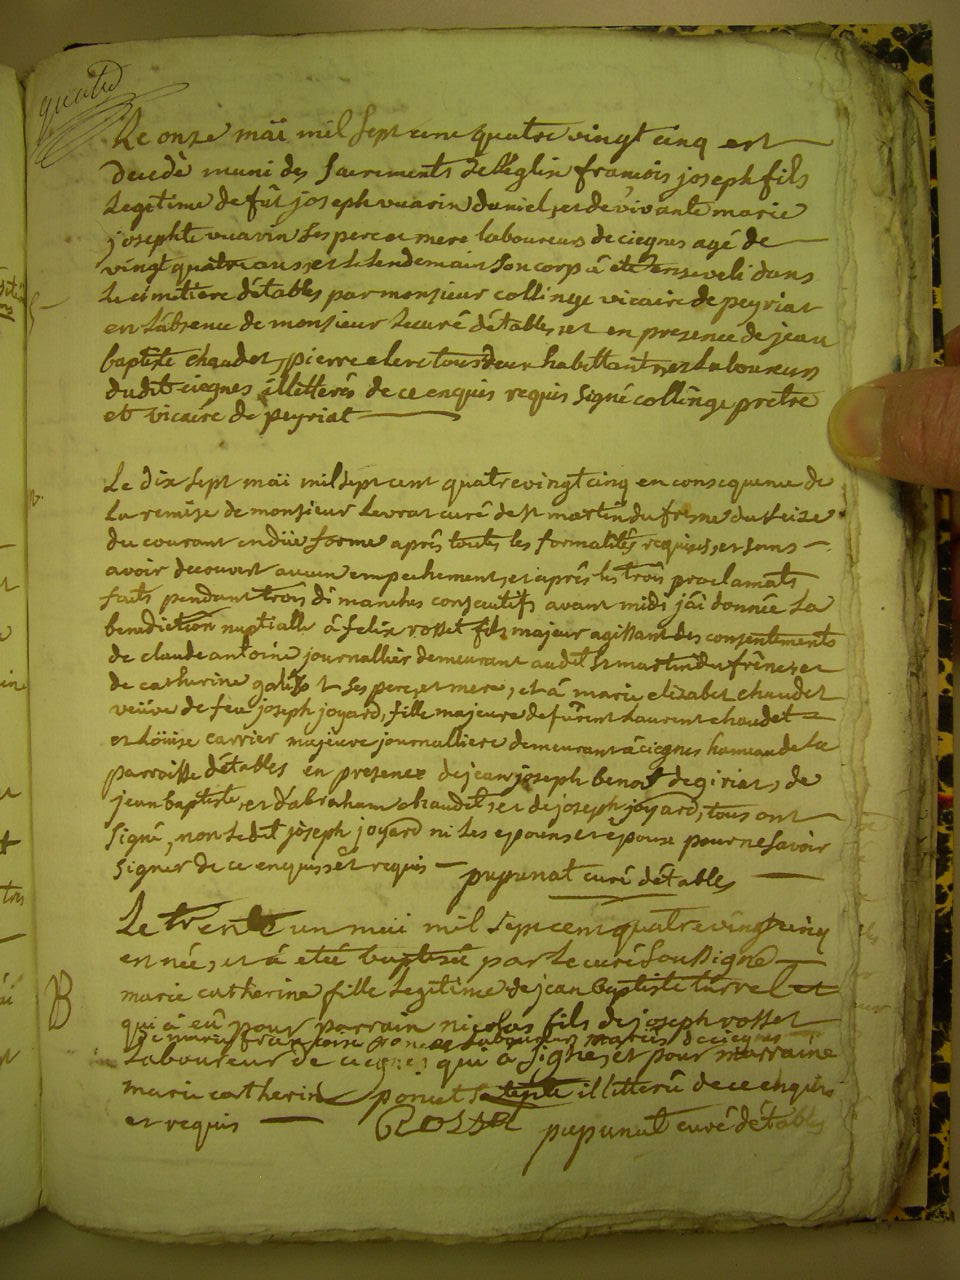 quatre
Le onze mäi mil sept cent quatre vingt cinq est
decedé muni des sacrements de l'eglise francois joseph fils
legitime de fût joseph vuarin daniel, et de vivante marie
josephte vuarin ses pere et mere laboureurs de ciegnes agé de
vingt quatre ans, et le lendemain son corp à été enseveli dans
le cimetiere d'étables par monsieur collinge vicaire de peyriat
en l'absence de monsieur le curé d'étables, et en presence de jean
baptiste chaudet, pierre clerc tous deux habittants, et laboureurs
dudit ciegnes illitterés de ce enquis requis signé collinge pretre
et vicaire de peyriat
Le dix sept mäi mil sept cent quatre vingt cinq en consequence de
la remise de monsieur levrat curé de st martin du fresne du seize
du courant en düe forme aprés toutes les formalités requises, et sans
avoir decouvert aucun empechement, et aprés les trois proclamats
faits pendant trois dimanches consecutifs avant midi j'ai donnée la
benediction nuptialle à felix rosset fils majeur agissant des consentements
de claude antoine journallier demeurant audit st martin du frêne, et
de catherine ses pere, et mere, et à marie elizabet chaudet
veüve de feu joseph joyard, fille majeure de fûrent laurent chaudet
et löuise carrier majeure journalliere demeurant à ciegnes hameau de la
parroisse d'étables en presence de jean joseph benoit de giriat, de
jean baptiste, et d'abraham chaudet, et de joseph joyard, tous ont
signé, non ledit joseph joyard ni les epoux, et epouse pour ne savoir
signer de ce enquis, et requis pupunat curé d'étables
Le trente un mäi mil sept cent quatre vingt cinq
est née, et à eté baptisée par le curé soussigné
B
marie catherine fille legitime de jean baptiste turrel et
de marie francoise poncet laboureurs mariés de ciegnes
qui à eû pour parrain nicolas fils de joseph rosset
laboureur de ciegnes qui a signé, et pour marraine
marie catherine poncet sa tente illitteré de ce enquis
et requis ROSSET pupunat curé d'étables